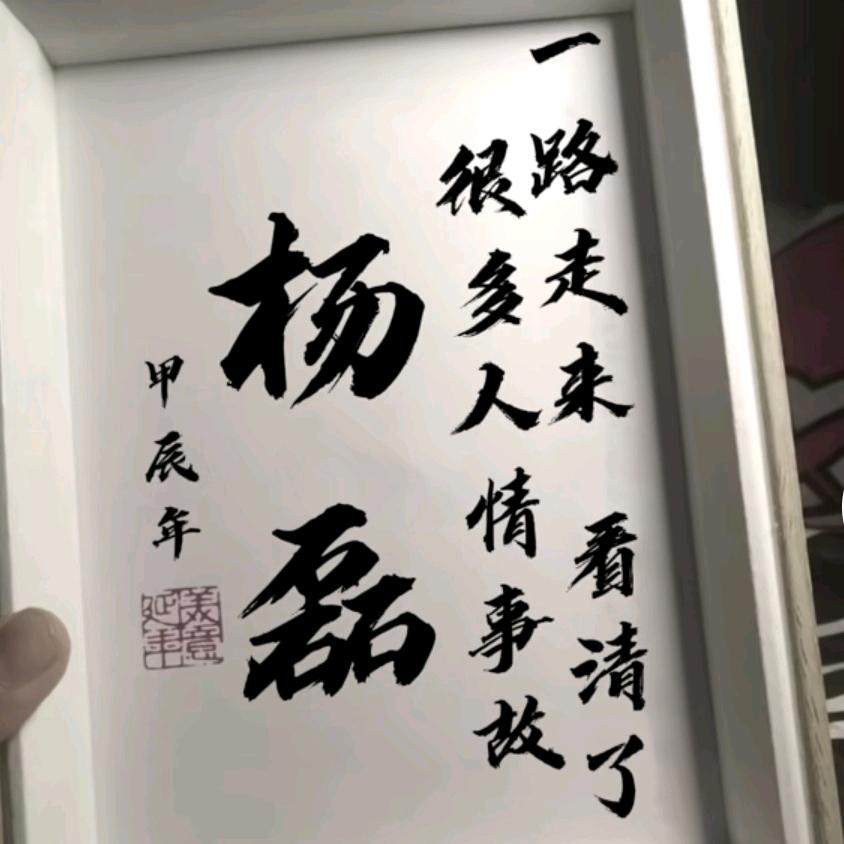 一路走来 看清了
很多人情事故
杨磊
甲辰年
美意延年